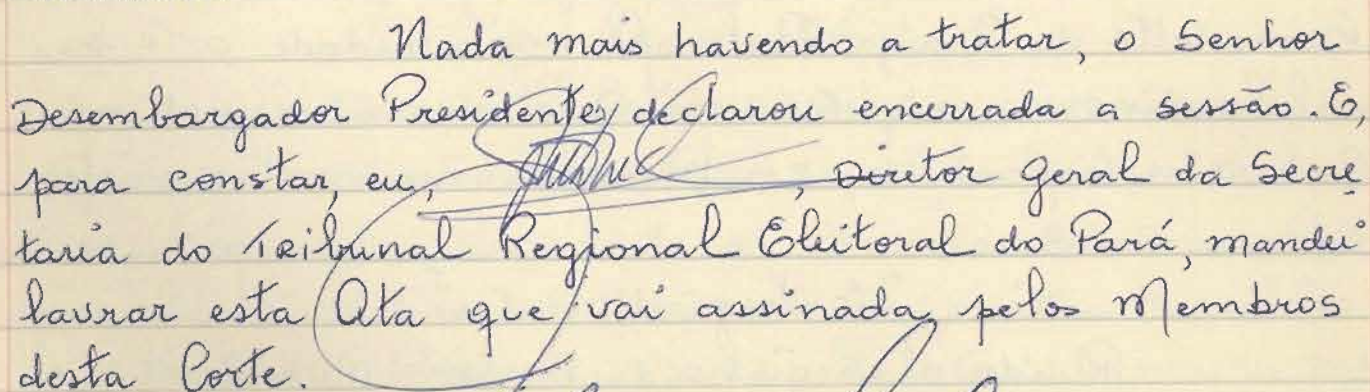 Nada mais havendo a tratar, o Senhor
Desembargador Presidente, declarou encerrada a sessão. E,
para constar, eu, , Diretor Geral da Secre
taria do Tribunal Regional Eleitoral do Pará, mandei
lavrar esta Ata que vai assinada pelos Membros
desta Corte.